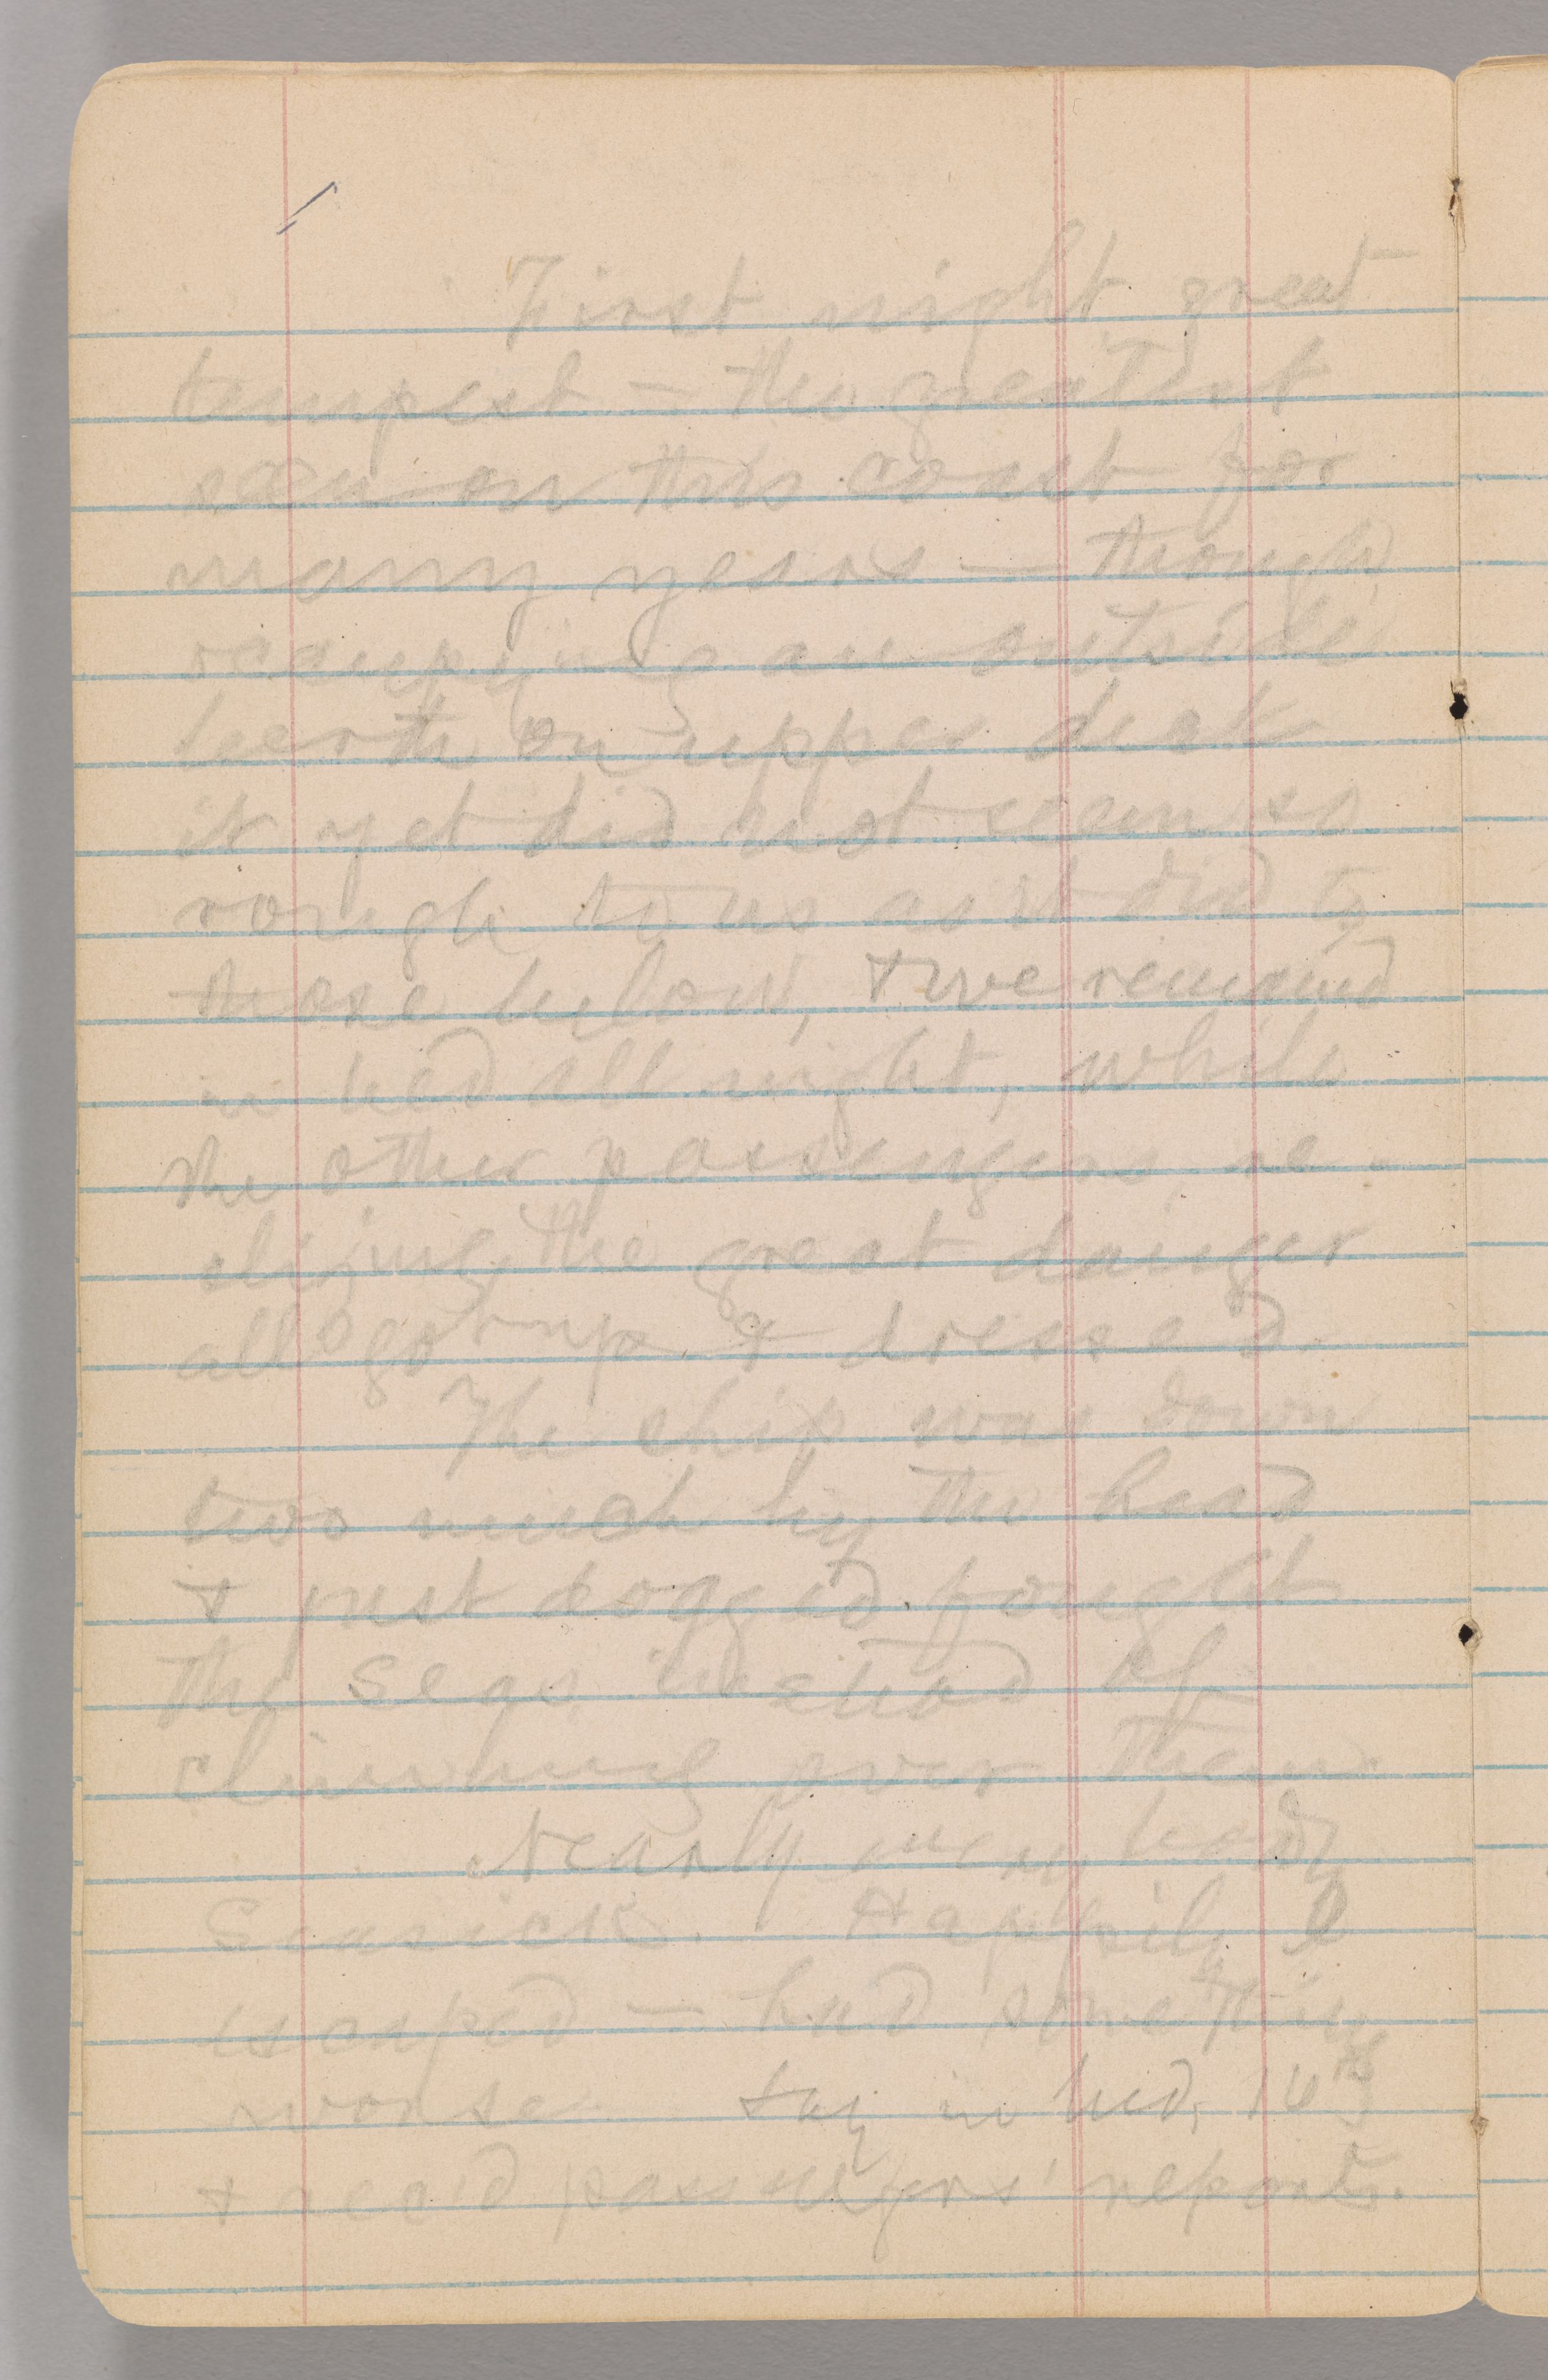 First night great
tempest — the greatest
seen on this coast for
many years — though
occupying an outside
berth on upper deck
it yet did not seem so
rough to us as it did to
those below, & we remained
in bed all night, while
the other passengers, re-
alizing the great danger
all got up & dressed.
The ship was down
two much by the head
& just dogged fought
the seas instead of
climbing over them.
Nearly every body
Seasick. Happily I
escaped — had something
worse. Lay in bed,
& rec'd passengers' reports.